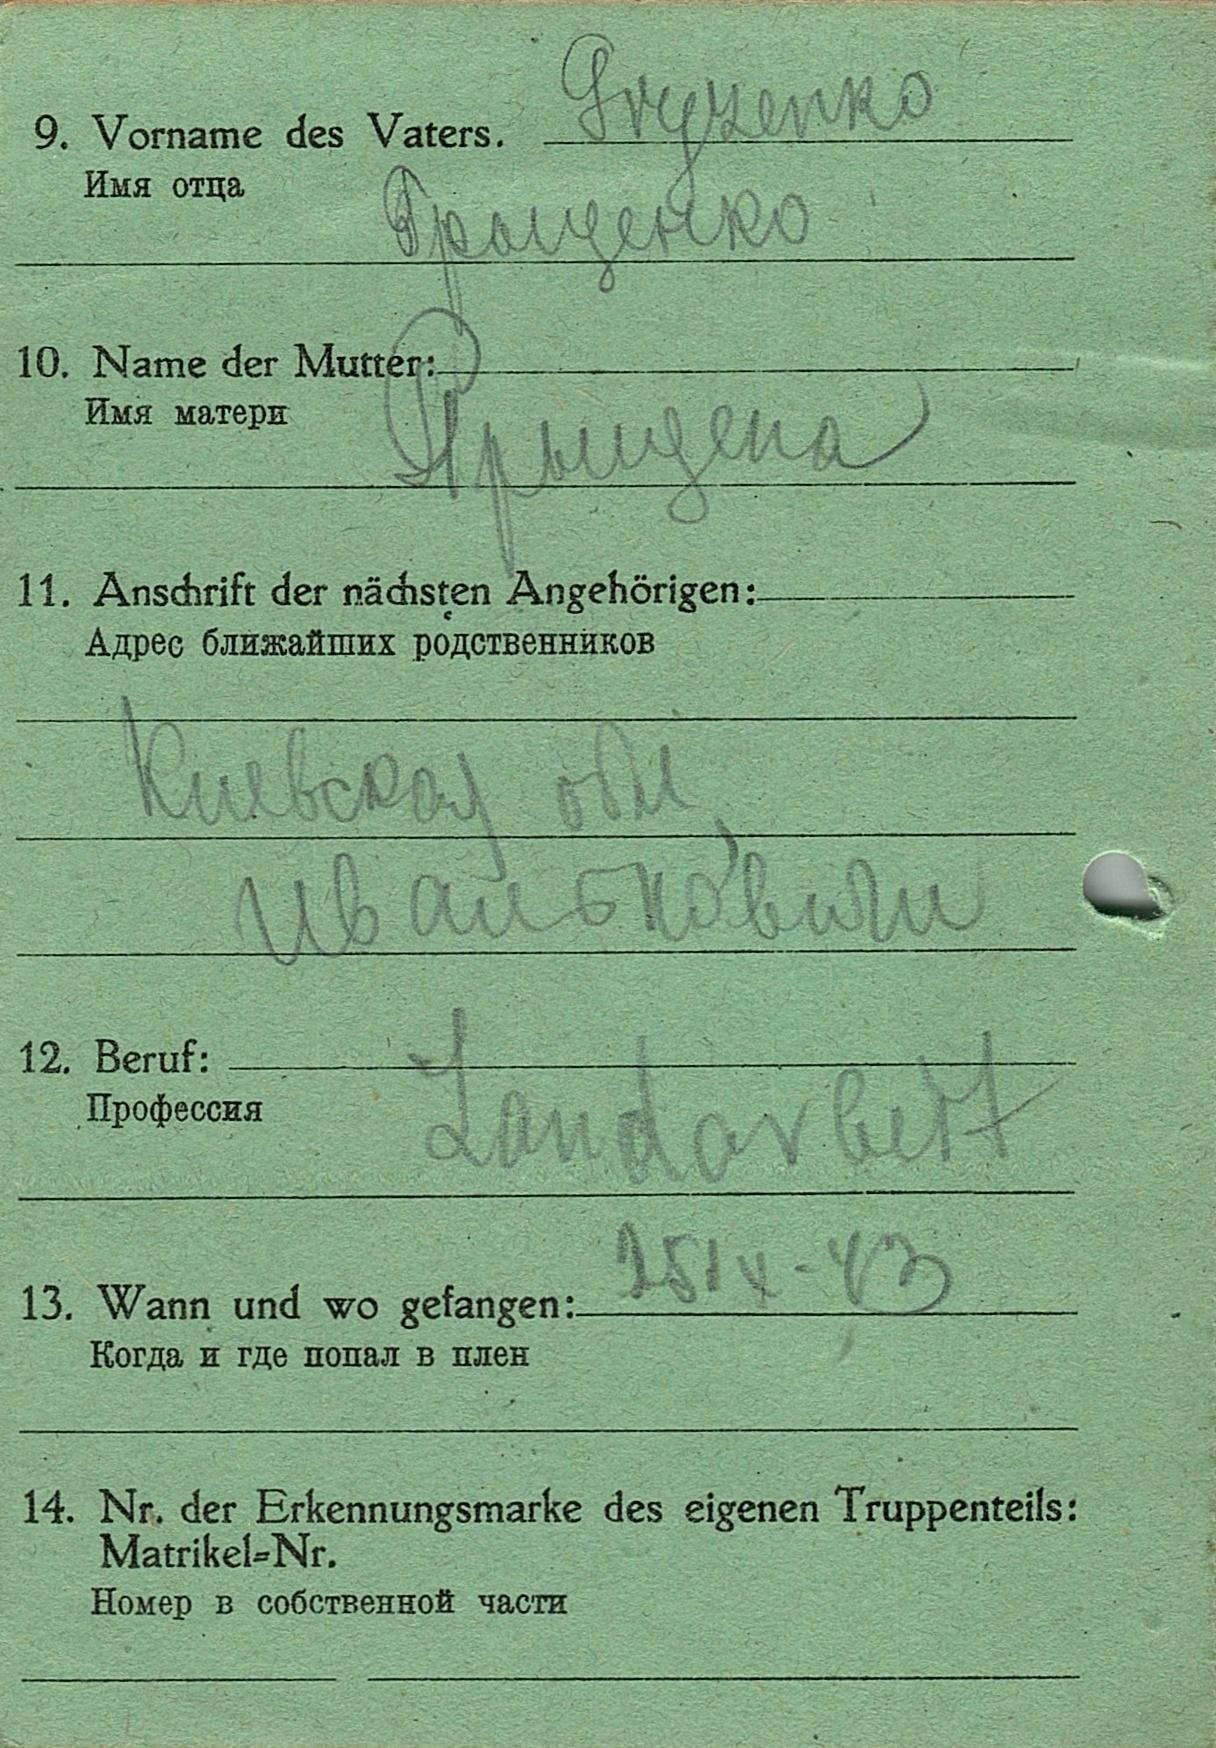 9. Vorname des Vaters.
Имя отца
10. Name der Mutter:
Имя матери
11. Anschrift der nächsten Angehörigen:
Адрес ближайших родственников
Киевская обл
12. Beruf:
Landarbeit
Профессия
13. Wann und wo gefangen: 25 IX - 43
Когда и где попал в плен
14. Nr. der Erkennungsmarke des eigenen Truppenteils:
Matrikel-Nr.
Номер в собственной части